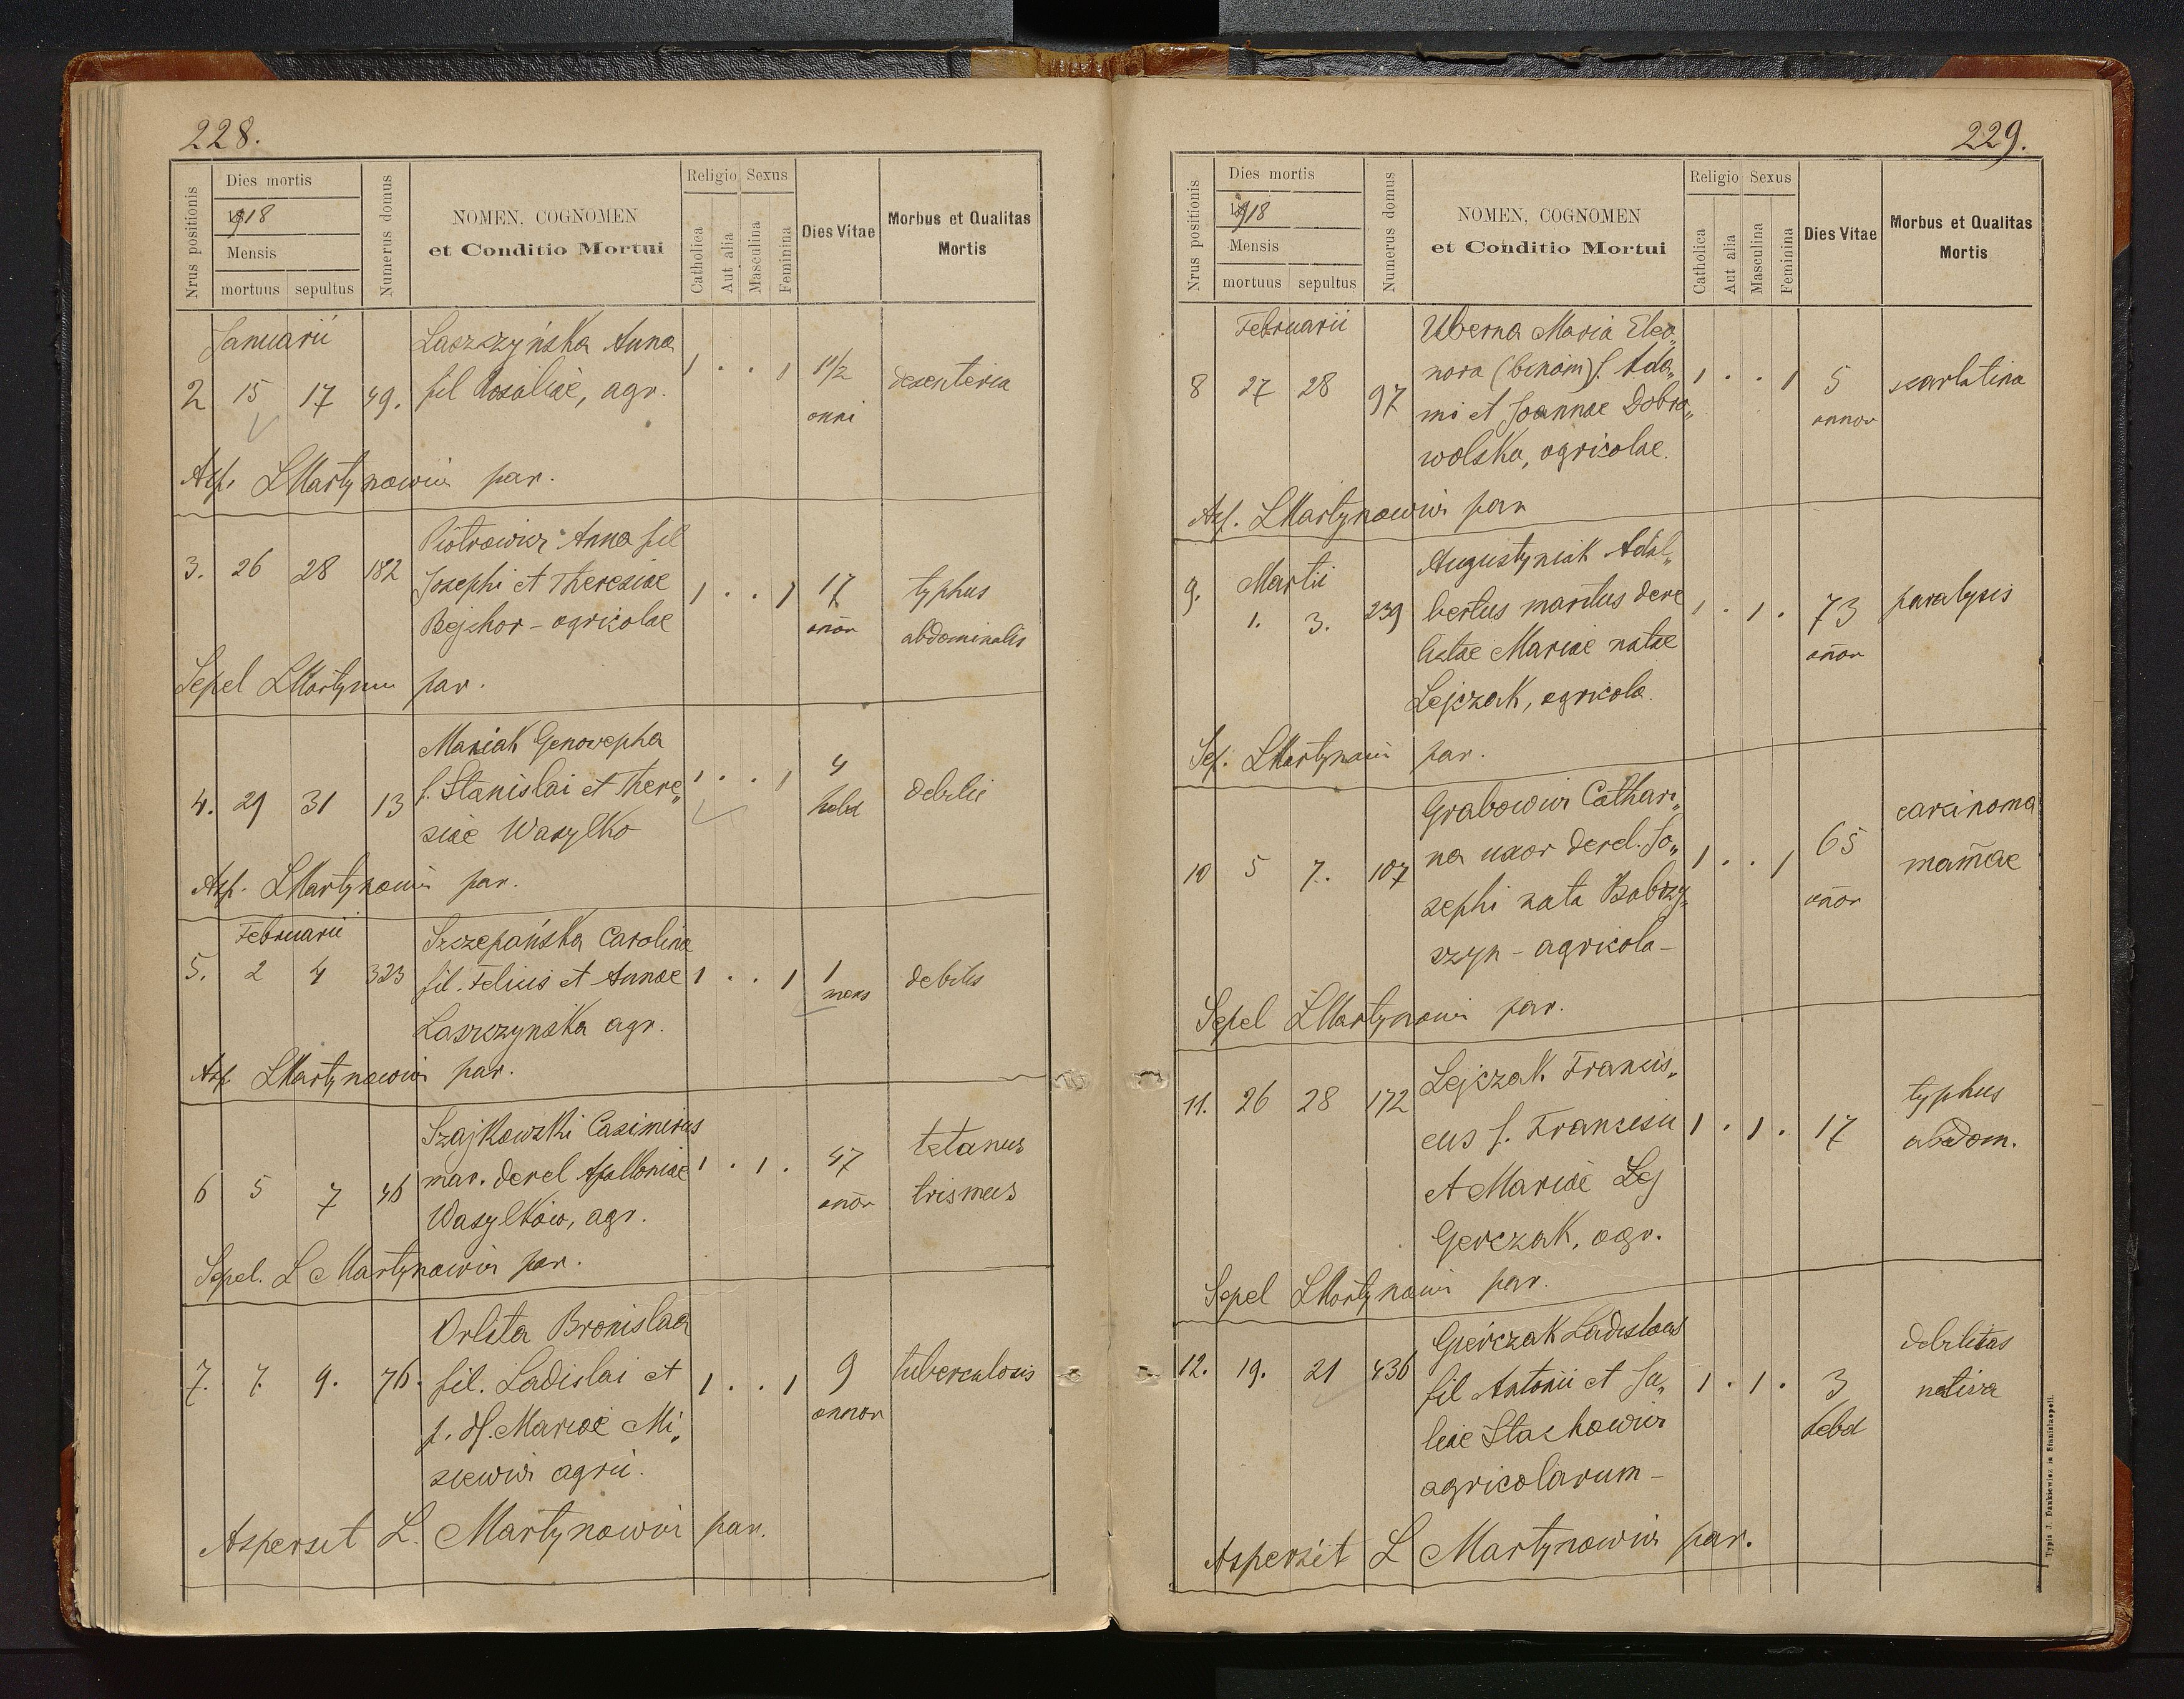 228.
Nrus positionis
Dies mortis
1918
Mensis
mortuus sepultus
Numerus domus
NOMEN, COGNOMEN
et Conditio Mortui
Religio Sexus
Catholica
Aut alia
Masculina
Feminina
Dies Vitae
Morbus et Qualitas
Mortis
Januarii
Laszczyńska Anna
2 15 17 49. fil Rosaliae, agr. 1 . . 1 1 1/2 desenteria
anni
Asp. LMartynowicz par.
Piotrowicz Anna fil
3. 26 28 182 Josephi et Theresiae 1 . . 1 17 typhus
Bejzhor - agricolae anor abdominalis
Sepel LMartynow par.
Maniak Genovepha
f. Stanislai et There„ 1 . . 1 4
4. 29 31 13 siae Wasylko hebd debilis
Asp. LMartynowicz par.
Februarii
Szczepańska Carolina
5. 2 4 323 fil. Felicis et Annae 1 . . 1 1 debilis
mens
Laszczynska agr.
Asp LMartynowicz par.
Szajkowski Casimirus
mar. derel Apolloniae 1 . 1 . 47 tetanus
6 5 7 46 Wasylków, agr. anor trismus
Sepel. L Martynowicz par.
Orlita Bronislaa
7. 7. 9. 76. fil. Ladislai et 1 . . 1 9 tuberculosis
Mariae Mi„ annor
siewicz agrii.
Aspersit L. Martynowicz par.
229.
Nrus positionis
Dies mortis
1918
Mensis
mortuus sepultus
Numerus domus
NOMEN, COGNOMEN
et Conditio Mortui
Religio Sexus
Catholica
Aut alia
Masculina
Feminina
Dies Vitae
Morbus et Qualitas
Mortis
Februarii
Uberna Maria Eleo„
nora (binom) f. Ada„
8 27 28 97 mi et Joannae Dobro„ 1 . . 1 5 scarlatina
annor
wolska, agricolae.
Asp. LMartynowicz par
Augustyniak Adal„
9. Martii
1. 3. 239 bertus maritus dere 1 . 1 . 73 paralysis
lictae Mariae natae anor
Lejczak, agricola.
Sep. LMartynowicz par.
Grabowicz Cathari„ carcinoma
na uxor derel. Jo„ 65
10 5 7. 107 sephi nata Babszy„ 1 . . 1 mamae
anor
szyn - agricola -
Sepel LMartynowicz par.
Lejczak Francis„
11. 26 28 172 cus f. Francisci 1 . 1 . 17 typhus
abdom.
et Mariae Lej
Gerczak, agr.
Sepel LMartynowicz par.
Gierczak Ladislaus debilitas
12. 19. 21 436 fil Antonii et Ju„ 1 . 1 . 3 nativa
liae Stachowicz hebd
agricolarum -
Aspersit L Martynowicz par.
Typis J. Dankiewicz in Stanislaopoli.